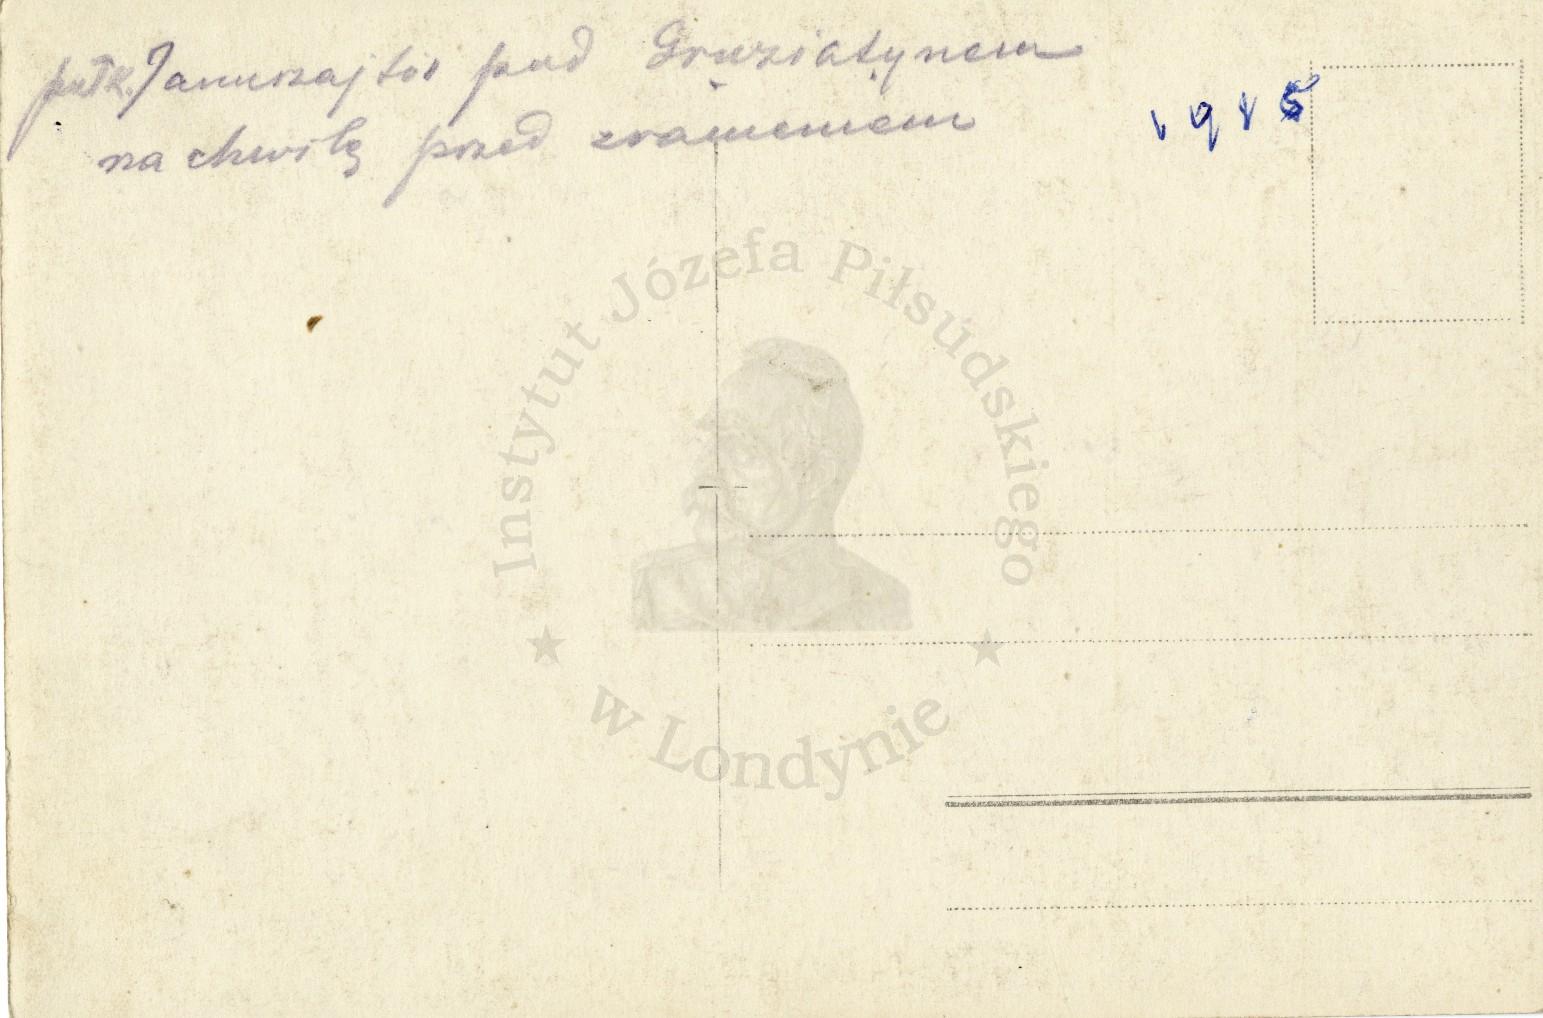 pułk. Januszajtis pod Gruziatynem
na chwilę przed zranieniem
1915
Instytut Józefa Piłsudskiego
w Londynie